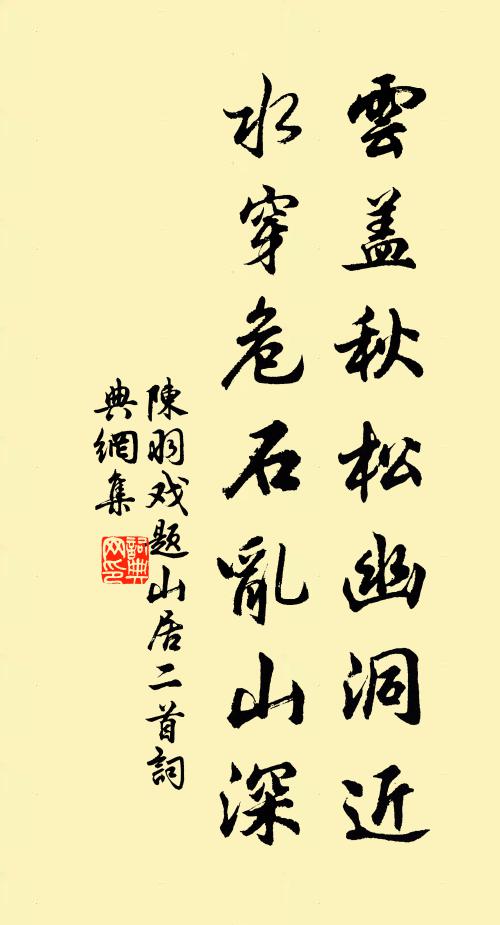 雲盖秋松幽洞近
水穿危石亂山深
陳羽戏题山居二首詞
典網集
詞典网印